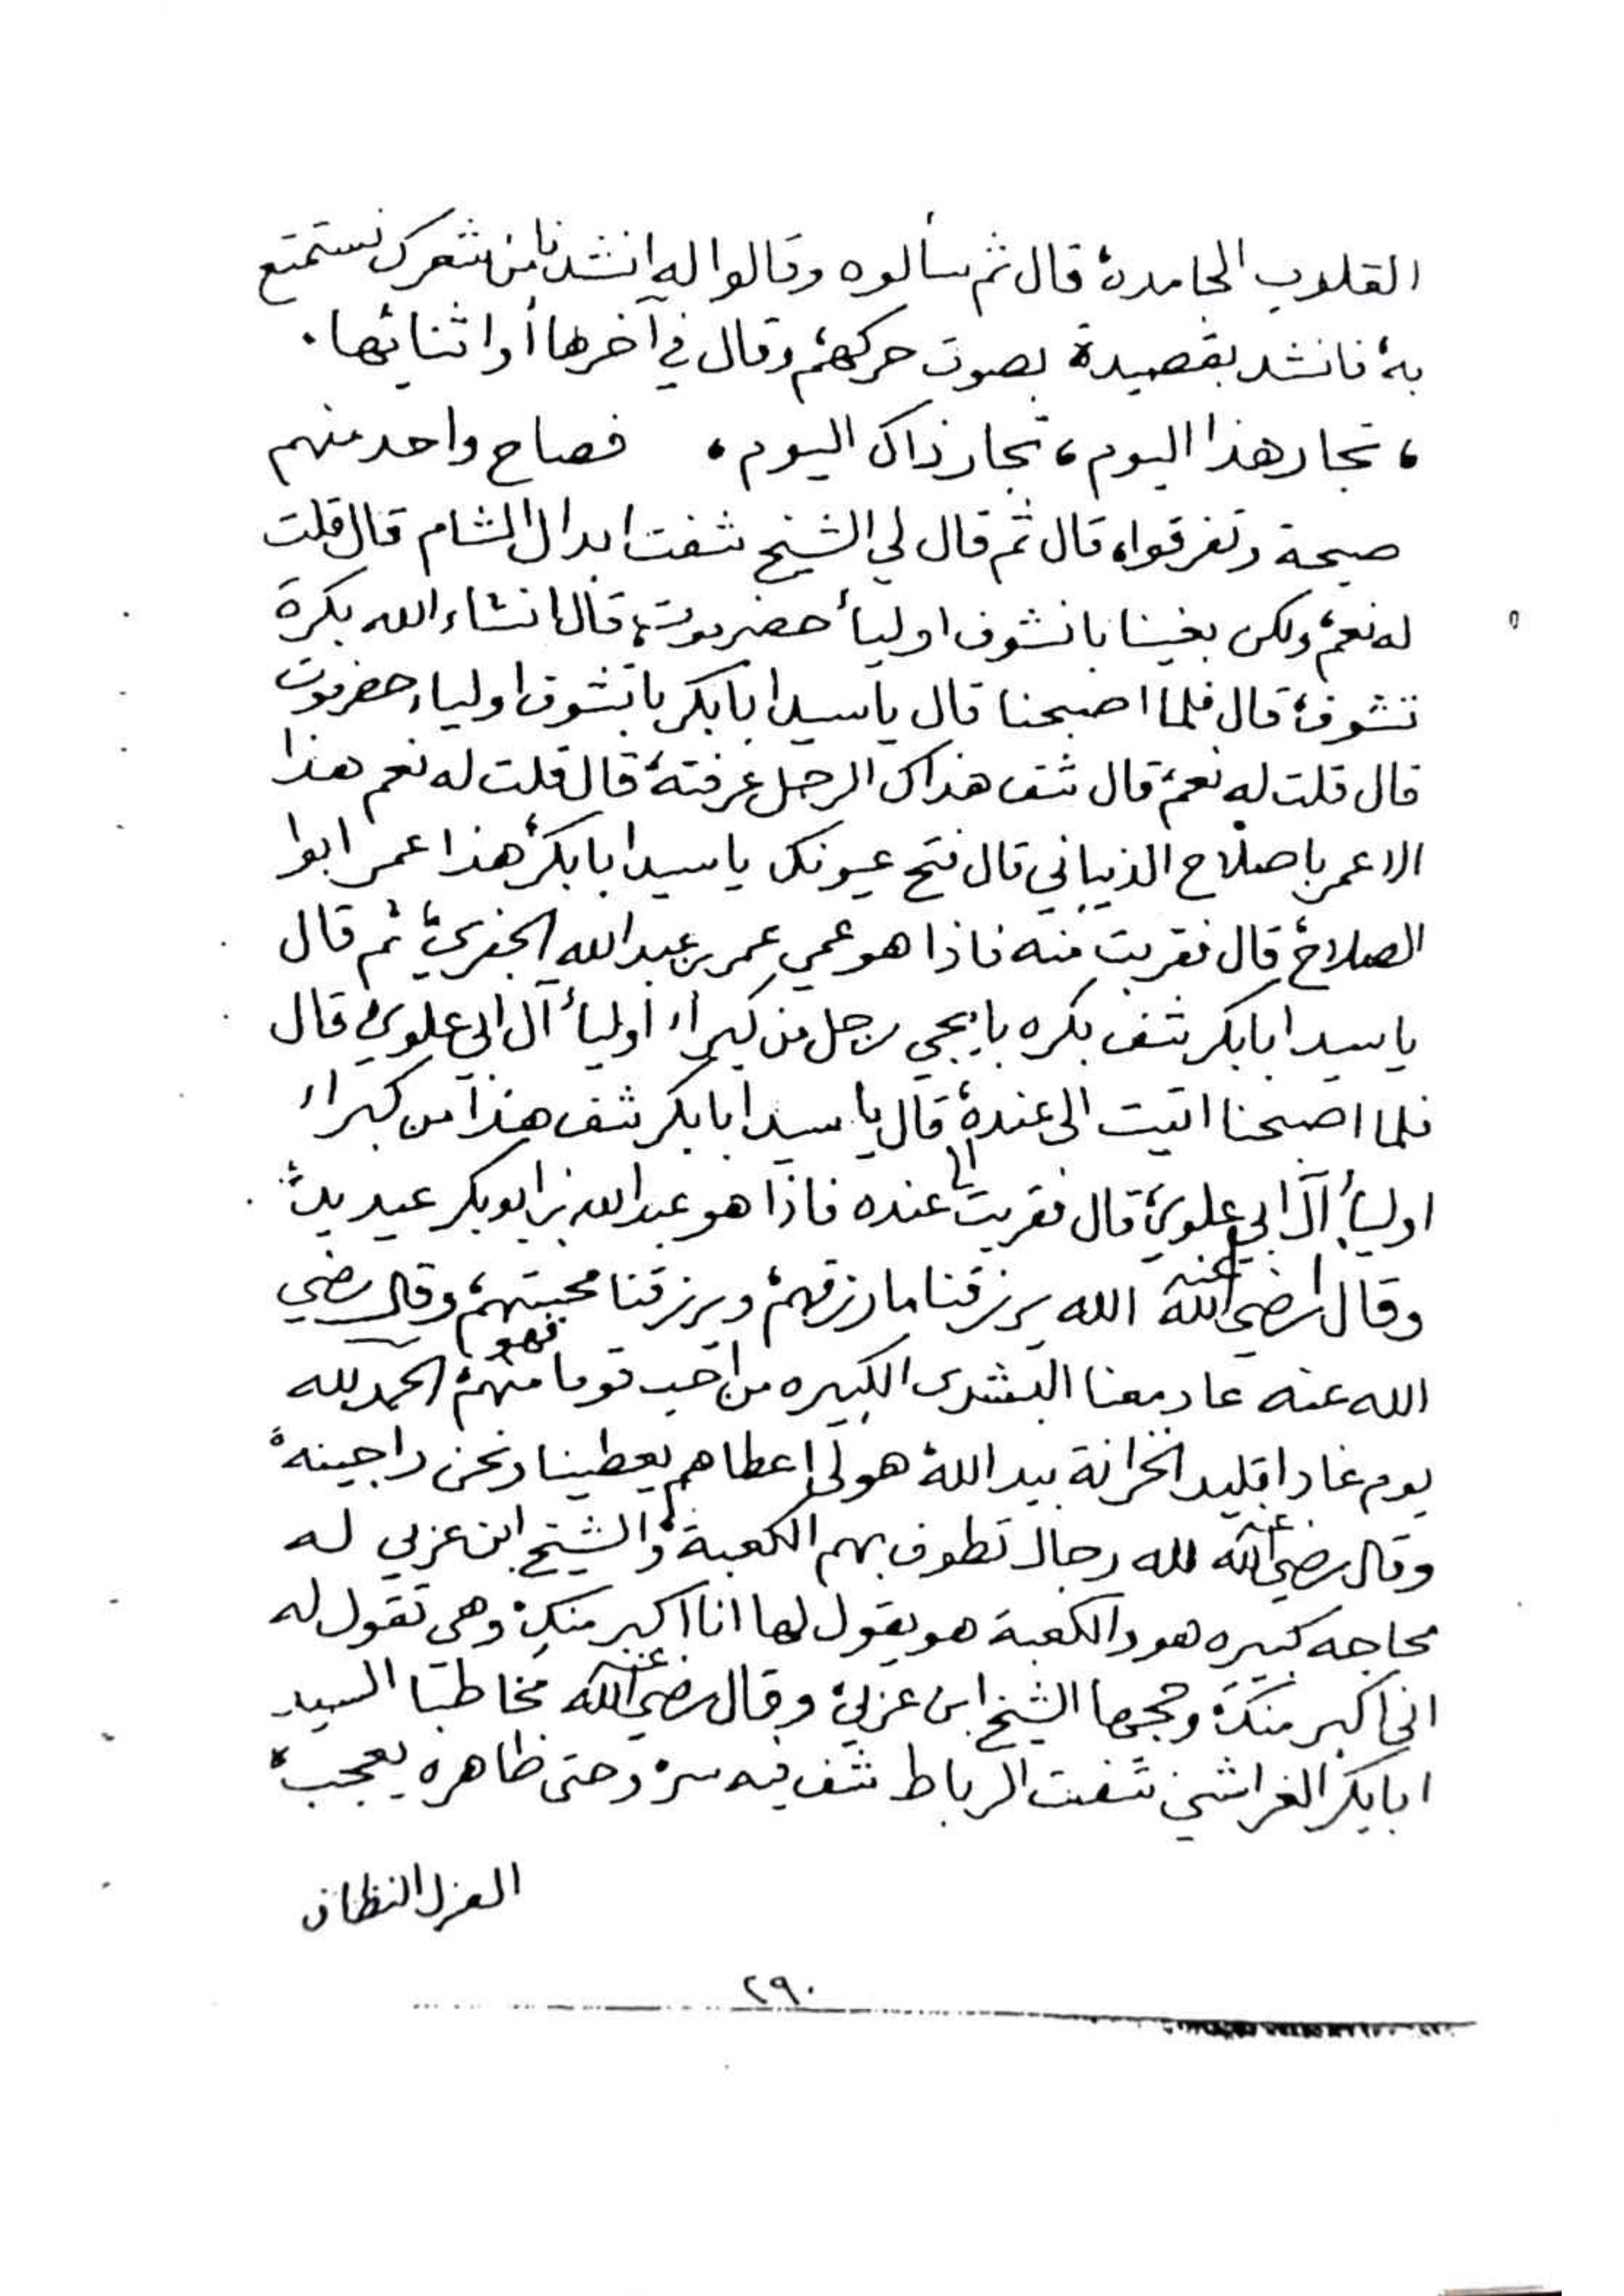 القلوب الجامدة، قال ثم سألوه وقالوا له انشدنا من شعرك نستمتع
به، فانشد بقصيدة بصوت حركهم، وقال في آخرها أو اثنائها.
، تجار هذا اليوم ، تجار ذاك اليوم ، فصاح واحد منهم
صيحة وتفرقوا، قال ثم قال لي الشيخ شفت ابدال الشام قال قلت
له نعم، ولكن بغينا بانشوف اوليأ حضرموت، قال انشاء الله بكرة
تشوف، قال فلما اصبحنا قال ياسيد ابابكر باتشوف اولياء حضرموت
قال قلت له نعم، قال شف هذاك الرجل عرفته، قال قلت له نعم هذا
الا عمر باصلاح الذيباني قال فتح عيونك ياسيد ابابكر، هذا عمر ابوا
الصلاح، قال فقربت منه فاذا هو عمي عمر بن عبدالله الجفري، ثم قال
ياسيد ابابكر شف بكره بايجي رجل من كبراء اوليأ آل ابي علوي، قال
فلما اصبحنا اتيت الى عنده، قال ياسيد ابابكر شف هذا من كبراء
اوليأ آل ابي علوي، قال فقربت الى عنده فاذا هو عبدالله بن ابوبكر عيديد،
وقال رضي الله عنه الله يرزقنا ما رزقهم، ويرزقنا محبتهم، وقال رضي
الله عنه عاد معنا البشرى الكبيره من احب قوما فهو منهم، الحمد لله
يوم عاد اقليد الخزانة بيد الله، هو لى اعطاهم يعطينا ونحن راجينه،
وقال رضي الله عنه لله رجال تطوف بهم الكعبة، والشيخ ابن عربي له
محاجه كبيره هو والكعبة هو يقول لها انا اكبر منك، وهي تقول له
انى اكبر منك، وحججها الشيخ ابن عربي، وقال رضي الله عنه مخاطبا السيد
ابابكر الغراشي شفت الرباط شف فيه سر، وحتى ظاهره يعجب،
العزل النظاف
٢٩٠